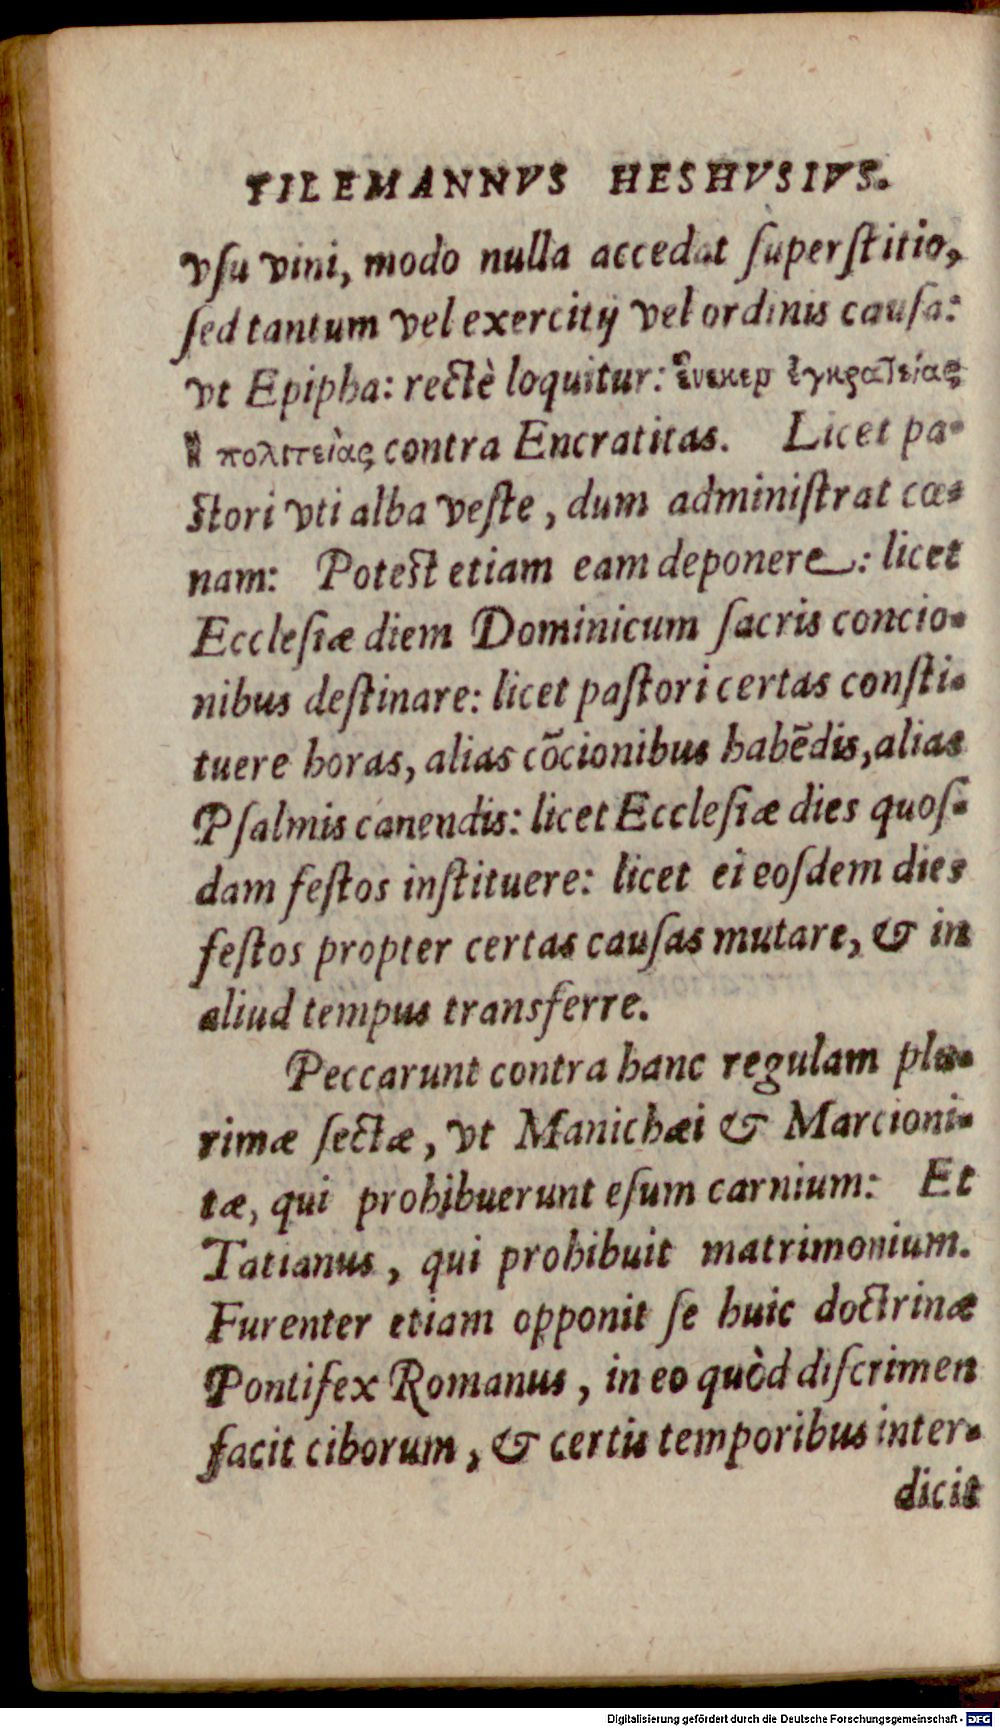 TILEMANNVS HESHVSIVS.
vſu vini, modo nulla accedat ſuperſtitio,
ſed tantum vel exercitij vel ordinis cauſa:
vt Epipha: rectè loquitur: ἕνεκεν ἐγκρατείας
ἢ πολιτείας contra Encratitas. Licet pa-
ſtori vti alba veſte, dum adminiſtrat cœ-
nam: Poteſt etiam eam deponere: licet
Eccleſiæ diem Dominicum ſacris concio-
nibus deſtinare: licet paſtori certas conſti-
tuere horas, alias cõcionibus habẽdis, alias
Pſalmis canendis: licet Eccleſiæ dies quoſ-
dam feſtos inſtituere: licet ei eoſdem dies
feſtos propter certas cauſas mutare, & in
aliud tempus transferre.
Peccarunt contra hanc regulam plu-
rimæ ſectæ, vt Manichæi & Marcioni-
tæ, qui prohibuerunt eſum carnium: Et
Tatianus, qui prohibuit matrimonium.
Furenter etiam opponit ſe huic doctrinæ
Pontifex Romanus, in eo quòd diſcrimen
facit ciborum, & certis temporibus inter-
dicit
Digitalisierung gefördert durch die Deutsche Forschungsgemeinschaft - DFG